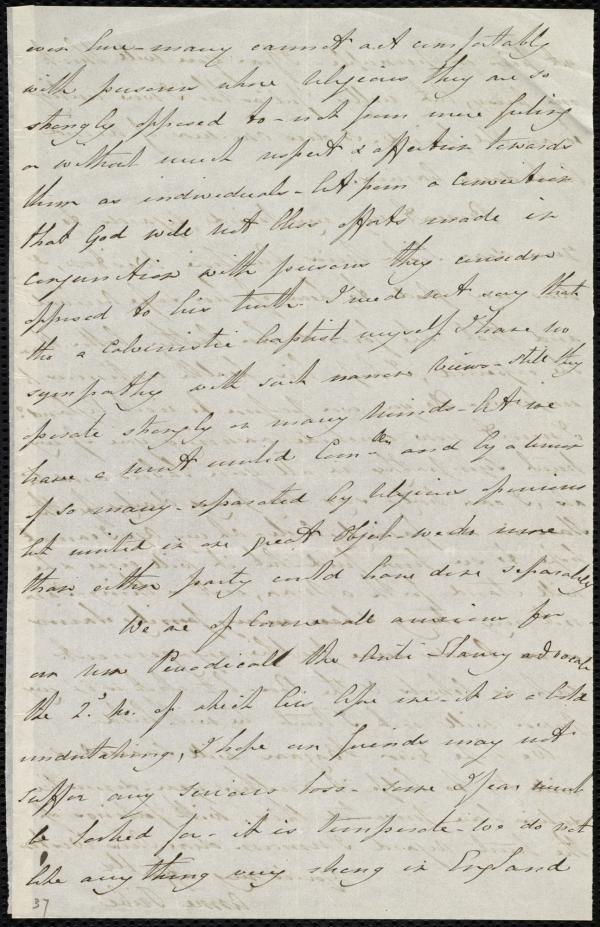 even here - many cannot act comfortably
with persons whose religious they are so
strongly opposed to - not from mere feeling
or without much respect & affection towards
them as individuals - but from a conviction
that God will not bless efforts made in
conjunction with persons they consider
opposed to his truth. I need not say that
tho' a Calvinistic baptist myself I have no
sympathy with such narrow views - still they
operate strongly on many minds - but we
have a most united Com.tee and by a union
of so many - separated by religious opinions
but united in one great object - we do more
than either party could have done separately
We are of Course all anxious for
our new Periodical the Anti-Slavery advocate
the 2.d No. of which lies before me - it is a bold
undertaking, I hope our friends may not
suffer any serious loss - some I fear must
be looked for - it is temperate - we do not
like anything very strong in England
37